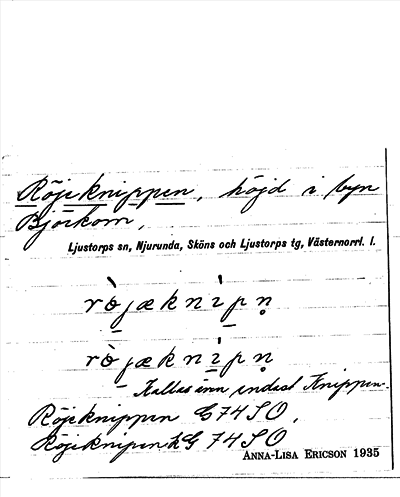 Röjeknippen, höjd i byn
Björkom,
Ljustorps sn, Njurunda, Sköns och Ljustorps tg, Västernorrl. l.
rò̱jæknı̀pn̥
rò̱jæknı̀pn̥
Kallas änn endast Knippen.
Röjeknippen G74SO,
Röjeknipen hG 74SO
ANNA-LISA ERICSON 1935